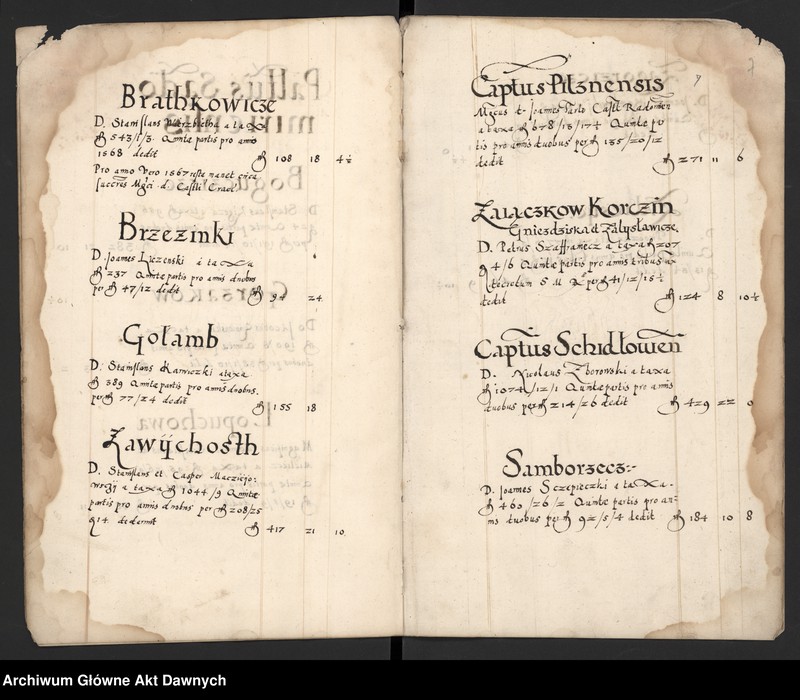 Brathkowicze
D. Stanislaus a taxa
543/1/3. Quintæ partis pro anno
1568 dedit 108 18 4½
Pro anno Vero 1567 restæ manet circa
succres Mgci d. Castli Cracel
Brzezinki
D. Joames Liczenski a taxa
237 Quintæ partis pro annis duobus
per 47/12 dedit 94 24
Gołamb
D. Stanislaus a taxa
389 Quintæ partis pro annis duobus.
per 77/24 dedit 155 18
Zawÿchosth
D. Stanislaus et Casper Macziejo:
a taxa 1044/9 Quintæ
partis pro annis duobus per 208/25
q 14. dederunt 417 21 10
Captus Pilznensis
Mgcus d. Joames Tarlo Castl. Radomien
a taxa 678/13/174 Quintæ par
tis pro annis duobus per 135/20/12
dedit 271 11 6
Zalączkow Korczin
Gniezdziska et Zalyslawicze.
D. Petrus Szaffraniecz a taxa 207
4/6 Quintæ partis pro annis tribus
S M per 41/12/15½
dedit 124 8 10½
Captus Schidlowien
D. Nicolaus Zborowski a taxa
1074/12/1 Quintæ partis pro annis
duobus per 214/26 dedit 429 22 0
Samborzecz:-
D. Joames a taxa.
460/26/2 Quintæ partis pro an=
nis duobus per 92/5/4 dedit 184 10 8
Archiwum Główne Akt Dawnych